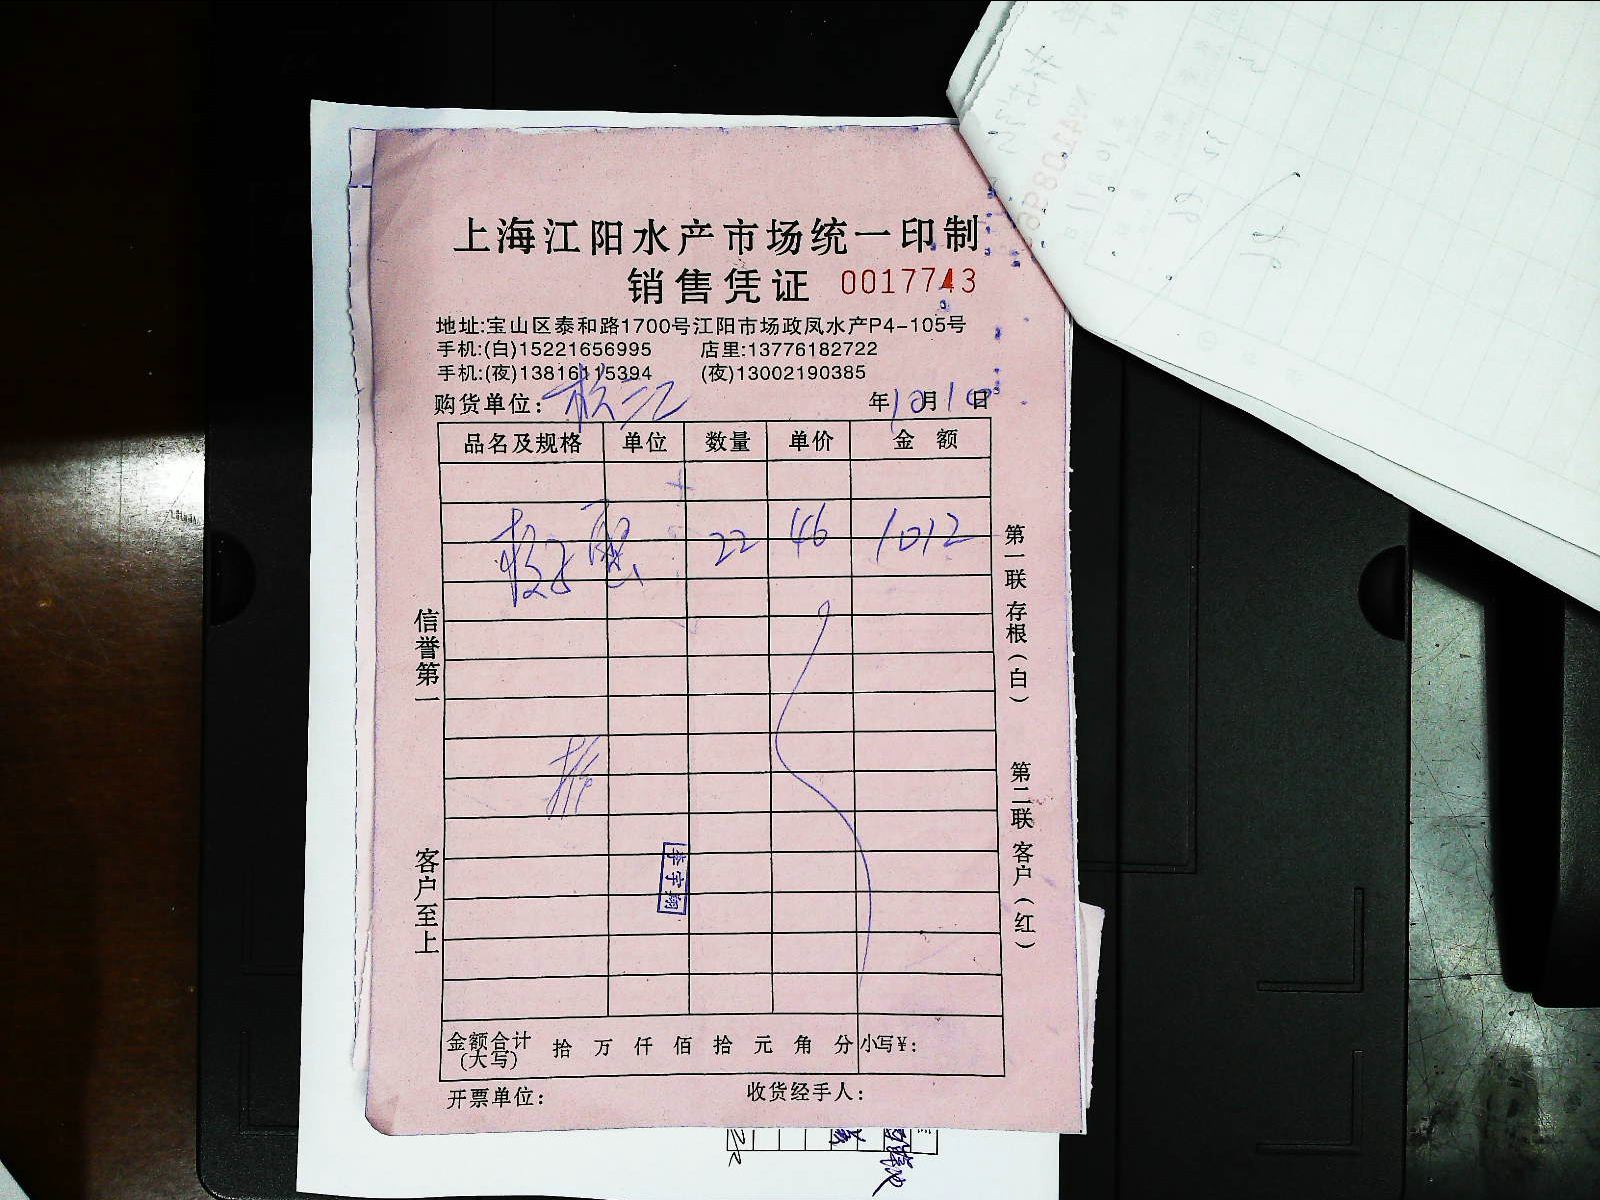 上海江阳水产市场统一印制
销售凭证 0017743
地址:宝山区泰和路1700号江阳市场政凤水产P4-105号
手机:(白)15221656995 店里:13776182722
手机:(夜)13816115394 (夜)13002190385
购货单位: 年10月10日
品名及规格 单位 数量 单价 金额
22 46 1012
信誉第一
客户至上
第一联 存根(白)
第二联 客户(红)
李宇翔
金额合计(大写) 拾 万 仟 佰 拾 元 角 分 小写¥:
开票单位: 收货经手人: